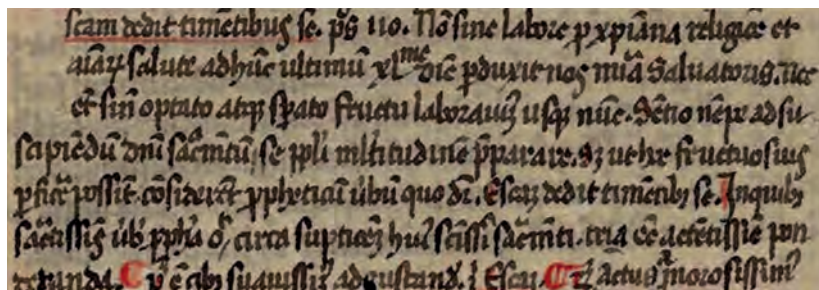 scam dedit timētibus se. pˢ 110. Nō sine labore ꝓ xpiāna religiōe et
aīaꝝ salute ad hūc ultimū xlᵐᵉ diē ꝑduxit nos mīa Salvatoris. Nec
et sin̄ optato atqꝫ sꝑato fructu laborauimꝰ usqꝫ nūc. Sētio nēpe ad su-
scipiēdū dn̄i sacrm̄tū, se ppl̄i ml̄titudinē p̄parare. Sꝫ ut hec fructuosius
ꝑficer̄ possit. cōsiderēt ꝓpheticū ūbū quo dr̄. Escaꝫ dedit timētibꝫ se. In quibꝫ
sāctissīs ūbis ꝓphā oñ, circa sūptiōeꝫ huiꝰ scīssi sacrm̄ti. tria eē actētissīe pon
deranda. Pⁱ ē cibi suauissimi ad gustandū. Escaꝫ. Actus morosissimꝰ